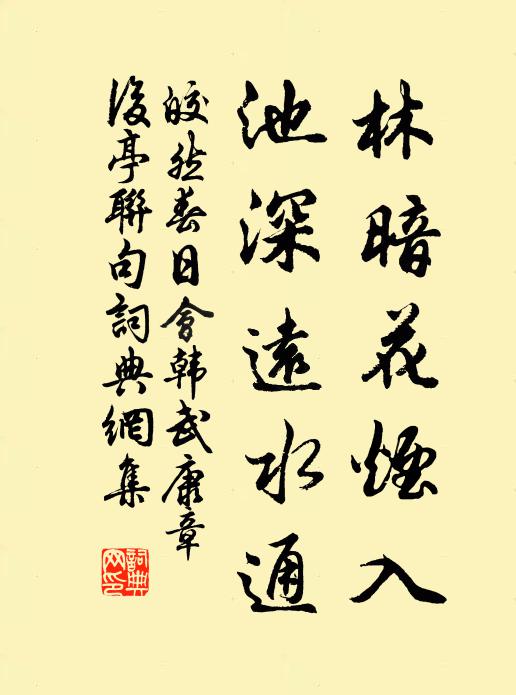 林暗花煙入
池深遠水通
皎然春日會韩武康章
後亭聯句詞典網集
詞典網印